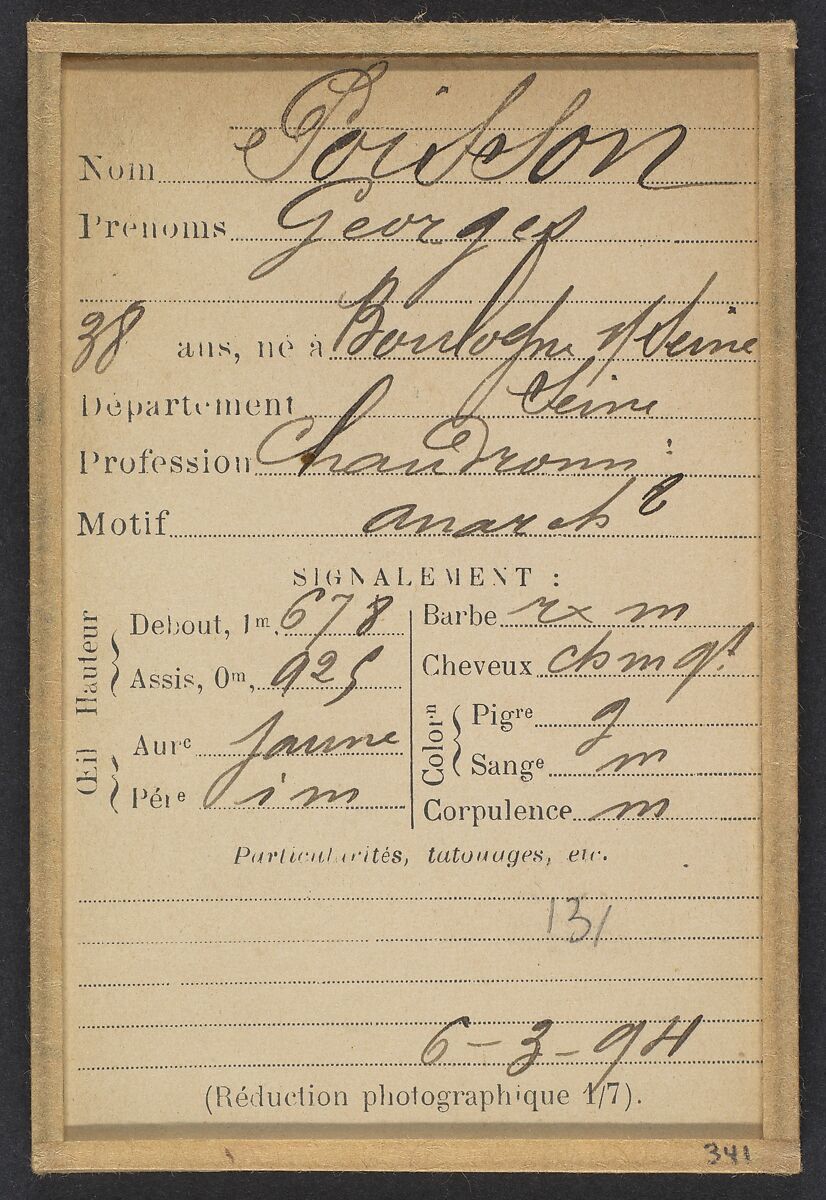 Nom Poisson
Prénoms Georges
38 ans, né à Boulogne s/Seine
Département Seine
Profession Chaudronni:
Motif anarch
SIGNALEMENT :
Hauteur
Debout, 1m. 678
Assis, 0m, 925
Œil
Aure jaune
Pére i m
Barbe rx m
Cheveux ch m
Colorn
Pigre g
Sange m
Corpulence m
Particularités, tatouages, etc.
131
6-3-94
(Réduction photographique 1/7).
341